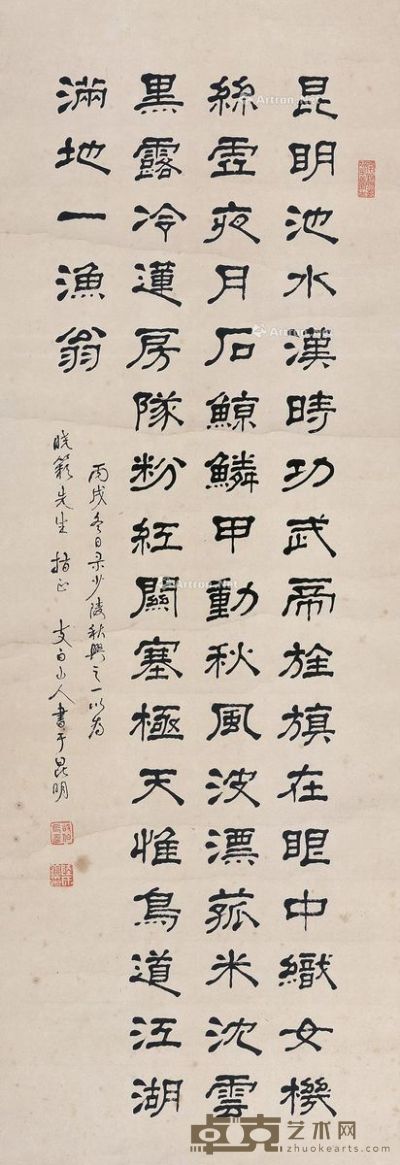 昆明池水漢時功武帝旌旗在眼中織女機
絲虛夜月石鯨鱗甲動秋風波漂菰米沈雲
黑露冷蓮房隊粉紅關塞極天惟鳥道江湖
滿地一漁翁
丙戌冬日录少陵秋興之一以為
晓籁先生 指正 山人書于昆明
Artron.Net
Artron.Net
Artron.Net
Artron.Net
卓克艺术网
zhuokearts.com